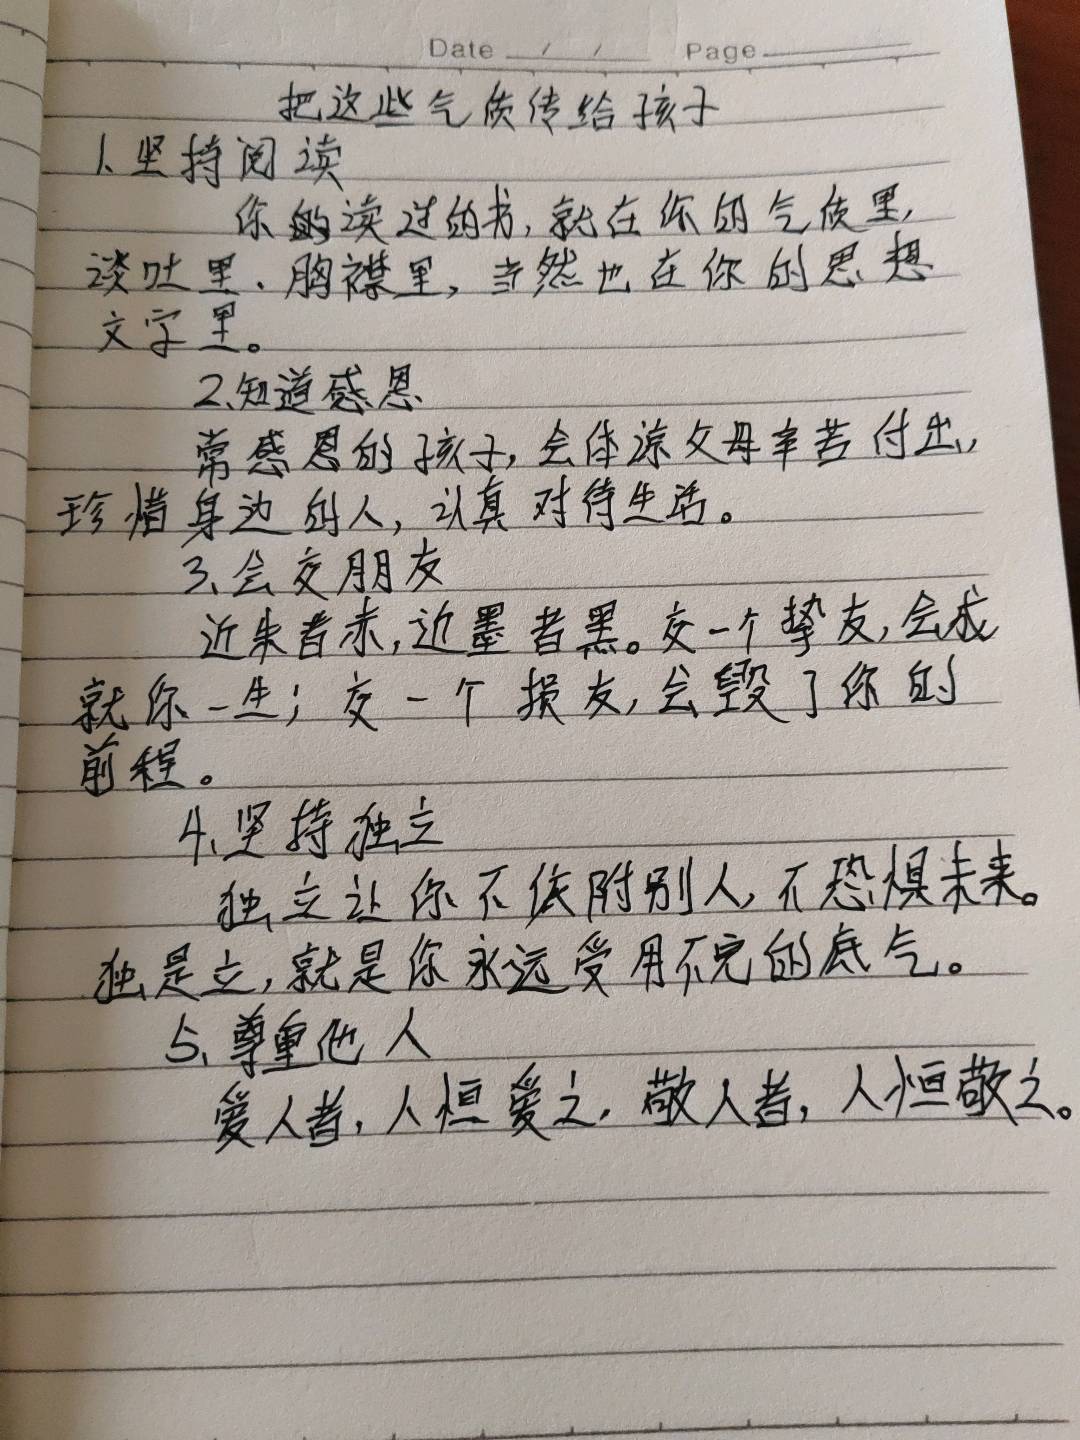 Date / / Page
把这些气质传给孩子
1、坚持阅读
你的读过的书,就在你的气质里,
谈吐里、胸襟里,当然也在你的思想
文字里。
2、知道感恩
常感恩的孩子,会体谅父母辛苦付出,
珍惜身边的人,认真对待生活。
3、会交朋友
近朱者赤,近墨者黑。交一个挚友,会成
就你一生;交一个损友,会毁了你的
前程。
4、坚持独立
独立让你不依附别人,不恐惧未来。
独是立,就是你永远受用不完的底气。
5、尊重他人
爱人者,人恒爱之,敬人者,人恒敬之。